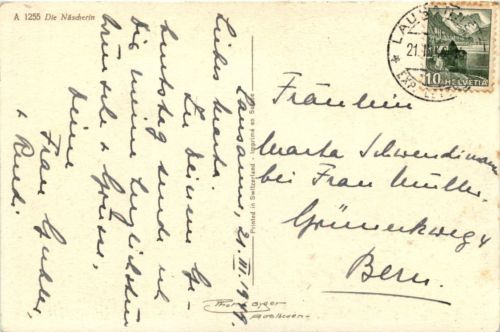 A 1255 Die Näscherin
Lausanne, 21. III. 1949.
Liebes Marta.
Zu Deinem Ge-
burtstag sende ich
Dir meine herzlichsten
Wünsche & Grüsse,
Deine
Frau
& Ruedi.
Printed in Switzerland - Imprimé en Suisse
Photo
LAUSANNE
21.III
EXP. LETT
10 HELVETIA
Fräulein
Marta Schwendimann
bei Frau Müller
Grünerweg
Bern.